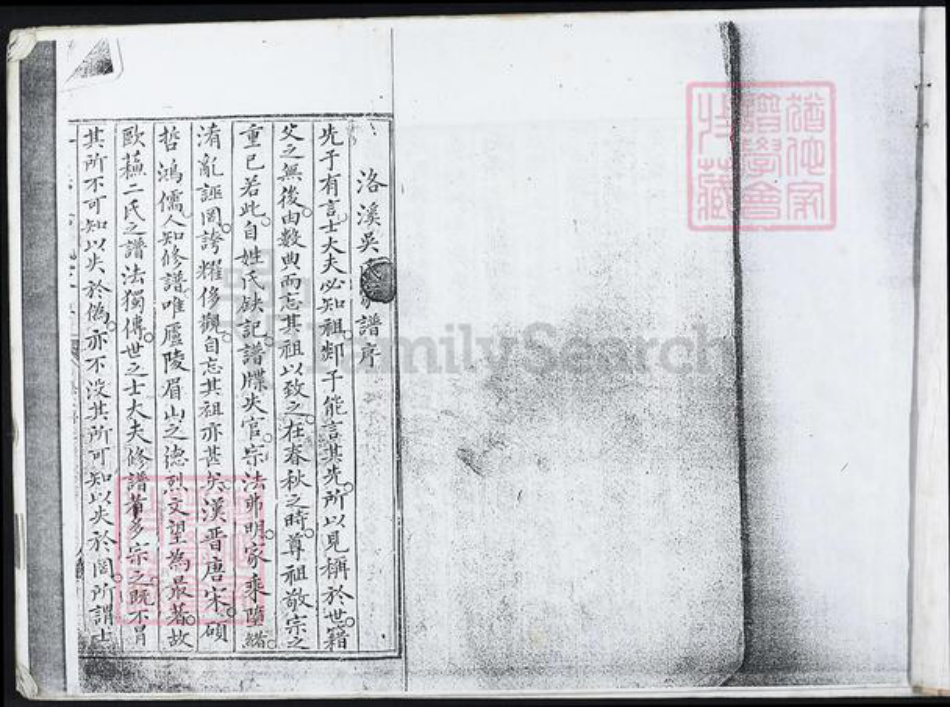 洛溪吳氏家譜序
先子有言士大夫必知祖郯子能言其先所以見稱於世籍
父之無後由數典而忘其祖以致之在春秋之時尊祖敬宗之
重已若此自姓氏缺記譜牒失官宗法弗明家乘墮
淆亂誣罔誇耀侈觀自忘其祖亦甚矣漢晋唐宋碩
哲鴻儒人知修譜唯廬陵眉山之德烈文望為最著故
歐蘇二氏之譜法獨傳世之士大夫修譜者多宗之既不冒
其所不可知以失於偽亦不没其所可知以失於罔所謂士
譜學會
收藏
FamilySearch